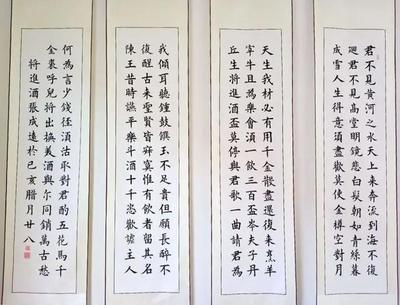 君不見黃河之水天上来奔流到海不復
迴君不見高堂明鏡悲白髮朝如青絲暮
成雪人生得意須盡歡莫使金樽空對月
天生我材必有用千金散盡還復来烹羊
宰牛且為樂會須一飲三百盃岑夫子丹
丘生将進酒盃莫停與君歌一曲請君為
我傾耳聽鐘鼓饌玉不足貴但願長醉不
復醒古来聖賢皆寂寞惟有飲者留其名
陳王昔時讌平樂斗酒十千恣歡謔主人
何為言少錢徑須沽取對君酌五花馬千
金裘呼兒将出換美酒與尔同銷萬古愁
将進酒張成遠於己亥腊月廿八